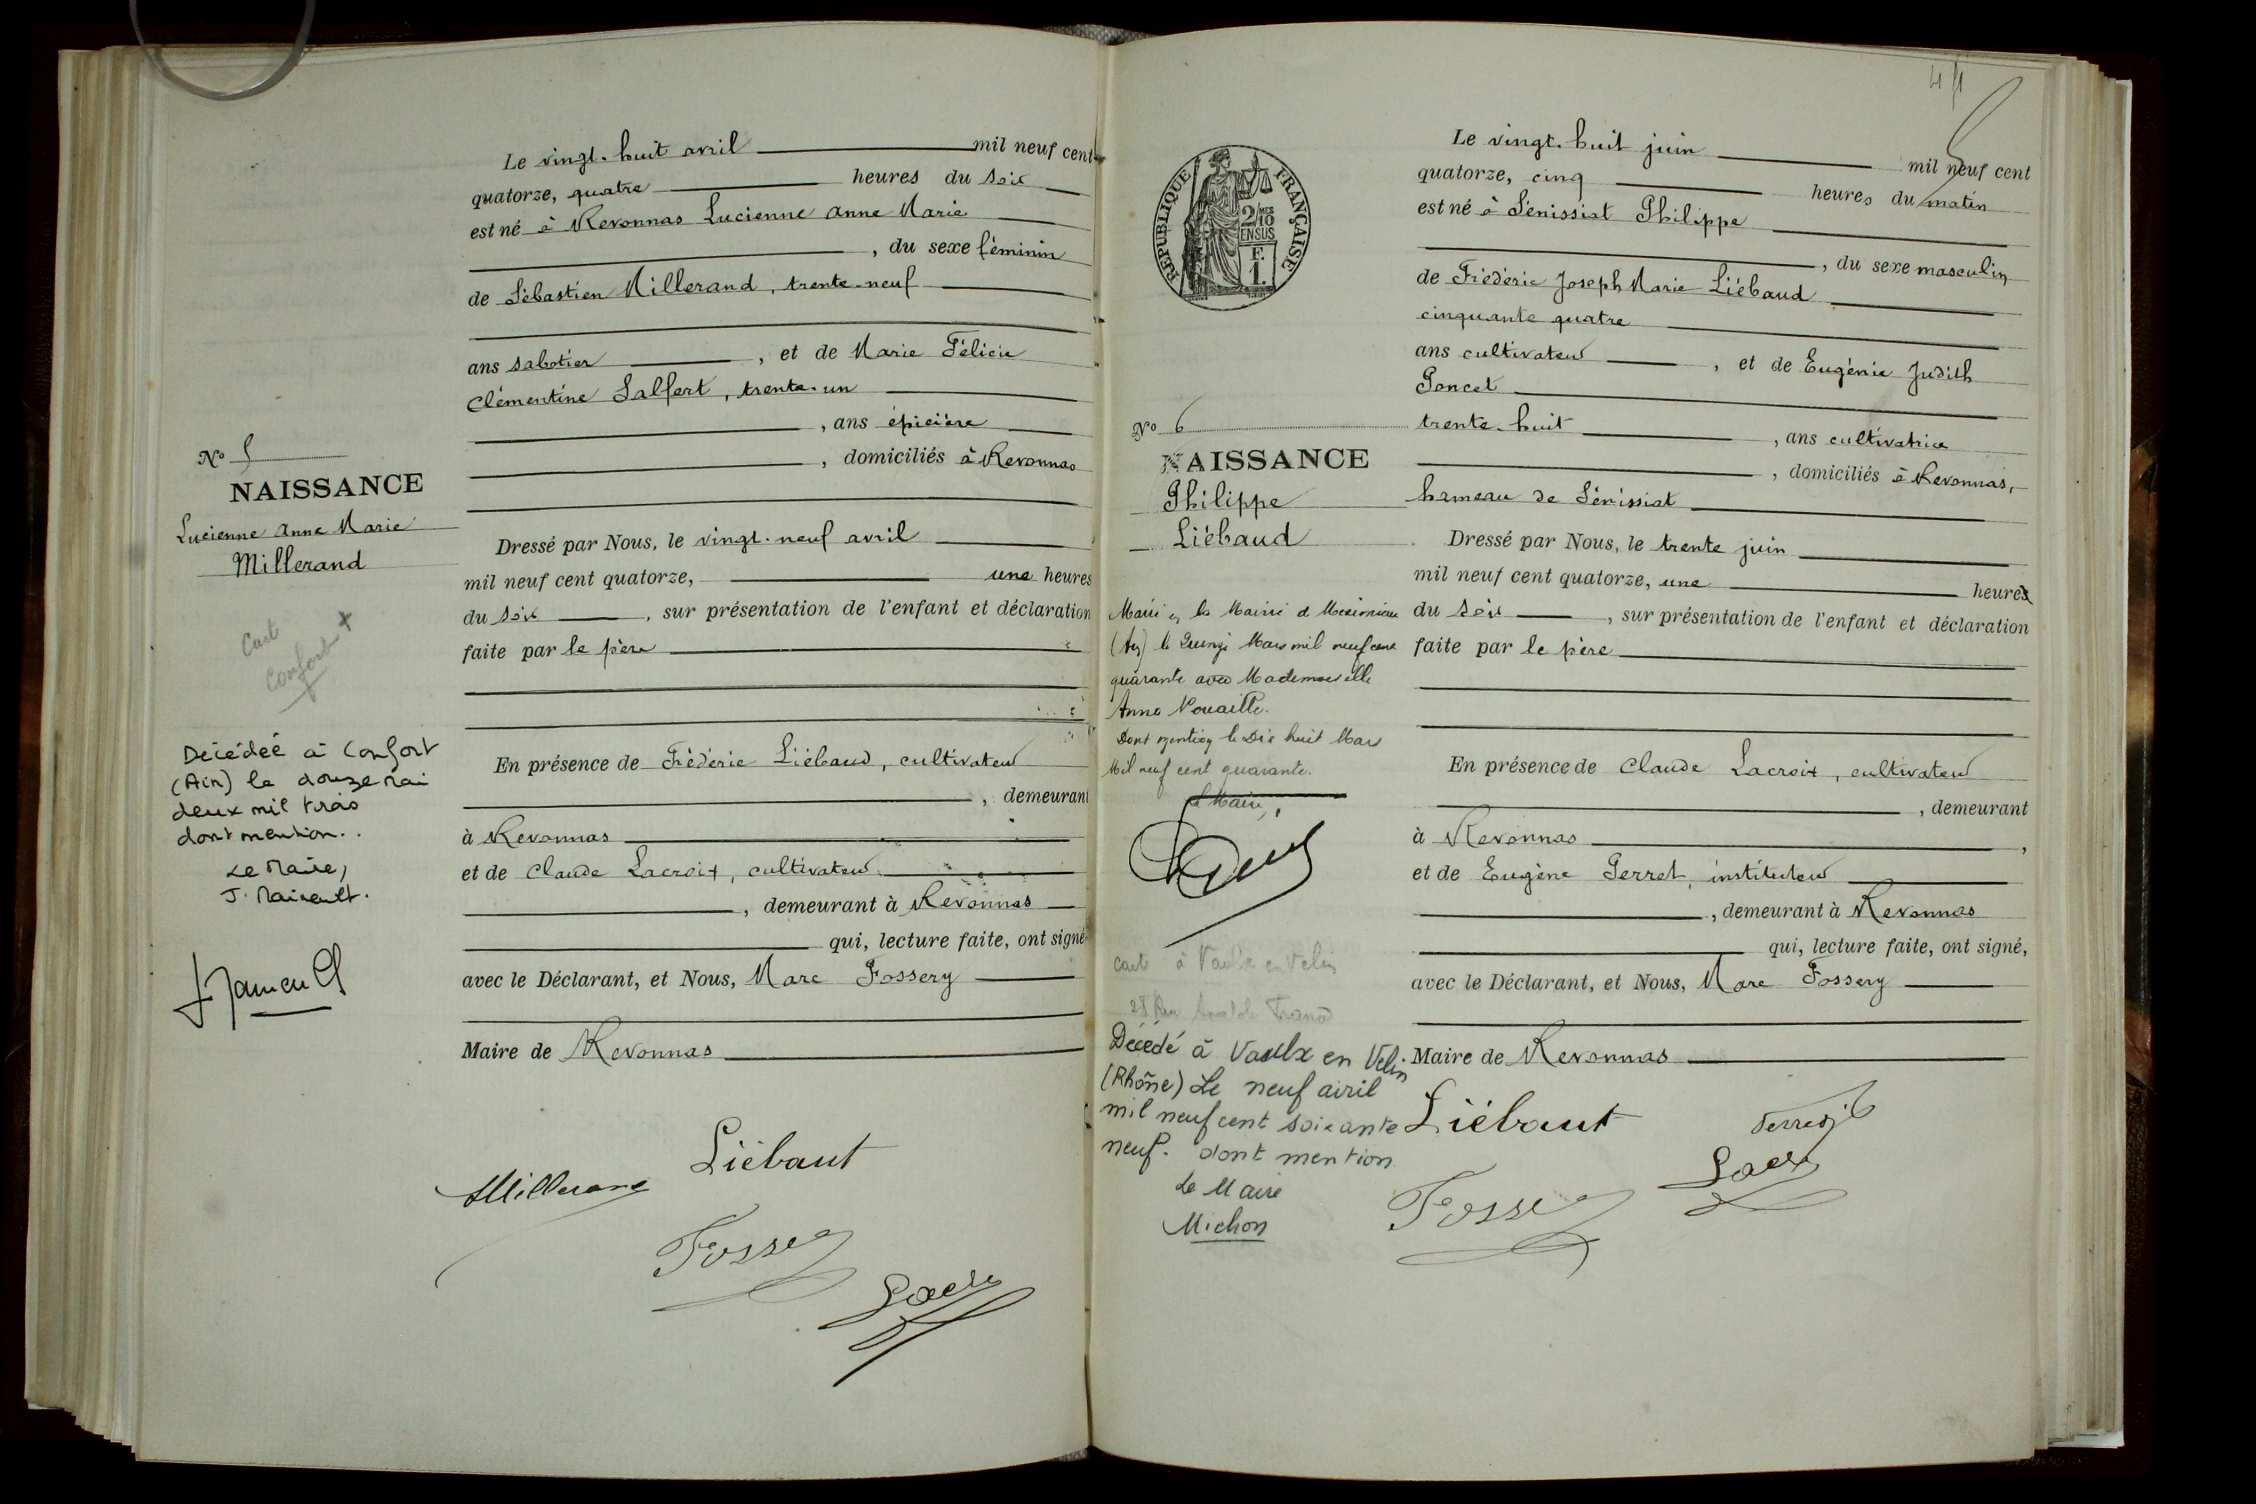 Le vingt-huit avril mil neuf cent
quatorze, quatre heures du soir
est né à Revonnas Lucienne Anne Marie
, du sexe féminin
de Sébastien Millerand, trente-neuf
ans sabotier , et de Marie Félicie
Clémentine Salfert, trente-un
, ans épicière
, domiciliés à Revonnas
No 5
NAISSANCE
Lucienne Anne Marie
Millerand
Dressé par Nous, le vingt-neuf avril
mil neuf cent quatorze, une heures
du soir , sur présentation de l'enfant et déclaration
faite par le père
Cart
Confort +
Décédée à Confort
(Ain) le douze mai
deux mil trois
dont mention..
Le Maire,
En présence de Frédéric Liébaud, cultivateur
, demeurant
à Revonnas
et de Claude Lacroix, cultivateur
, demeurant à Revonnas
qui, lecture faite, ont signé
avec le Déclarant, et Nous, Marc Fossery
Maire de Revonnas
Liébaut
Millerand
41
Le vingt-huit juin mil neuf cent
quatorze, cinq heures du matin
est né à Sénissiat Philippe
, du sexe masculin
de Frédéric Joseph Marie Liébaud
cinquante quatre
ans cultivateur , et de Eugénie Judith
Poncet
trente-huit , ans cultivatrice
, domiciliés à Revonnas,
hameau de Sénissiat
RÉPUBLIQUE FRANÇAISE
2/10 MES
EN SUS
F.
1.
No 6
NAISSANCE
Philippe
Liébaud
Dressé par Nous, le trente juin
mil neuf cent quatorze, une heures
du soir , sur présentation de l'enfant et déclaration
faite par le père
Marié à la Mairie de Meximieux
(Ain) le Quinze Mars mil neuf cent
quarante avec Mademoiselle
Anna Nouaille.
Dont mention le Dix huit Mars
Mil neuf cent quarante.
Le Maire,
carte à Vaulx en Velin
28 Rue France
Décédé à Vaulx en Velin
(Rhône) Le neuf avril
mil neuf cent soixante
neuf. dont mention
Le Maire
Michon
En présence de Claude Lacroix, cultivateur
, demeurant
à Revonnas ,
et de Eugène Perret, instituteur
, demeurant à Revonnas
qui, lecture faite, ont signé,
avec le Déclarant, et Nous, Marc Fossery
Maire de Revonnas
Liébaut